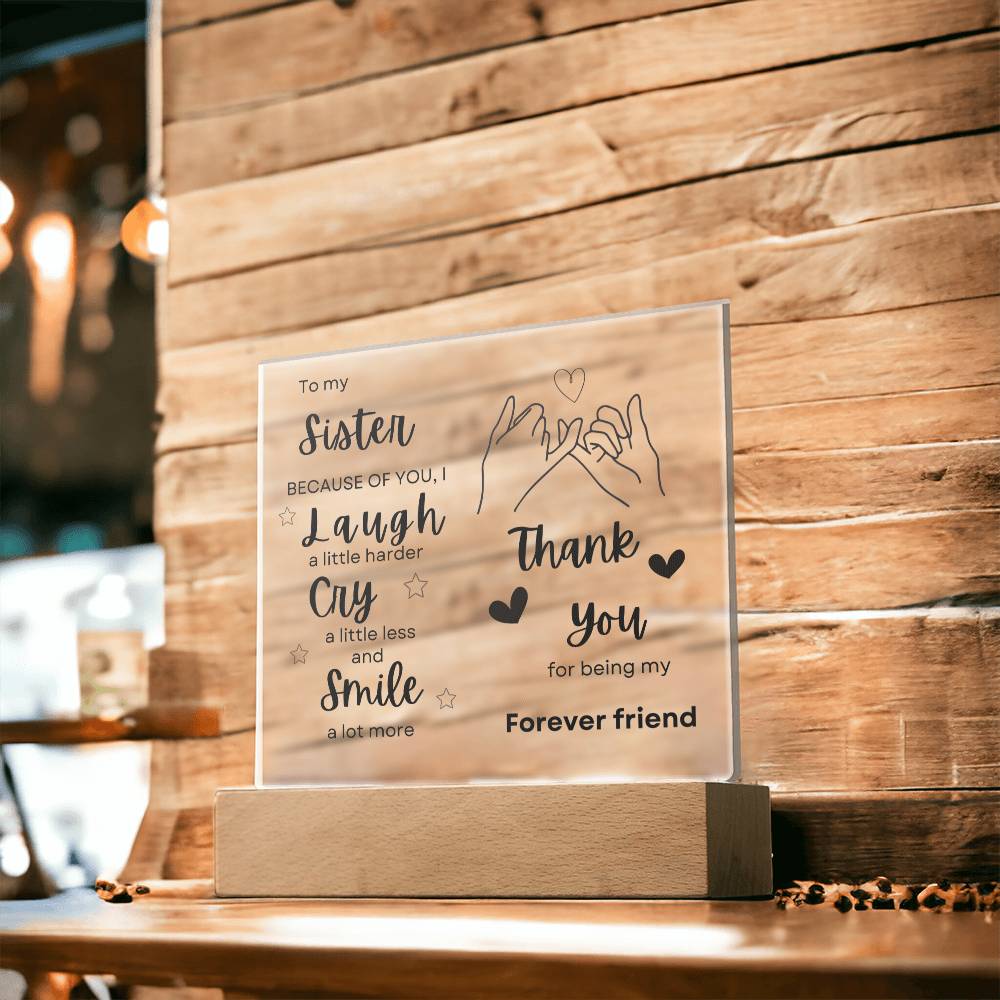 To my
Sister
BECAUSE OF YOU, I
Laugh
a little harder
Cry
a little less
and
Smile
a lot more
Thank
You
for being my
Forever friend